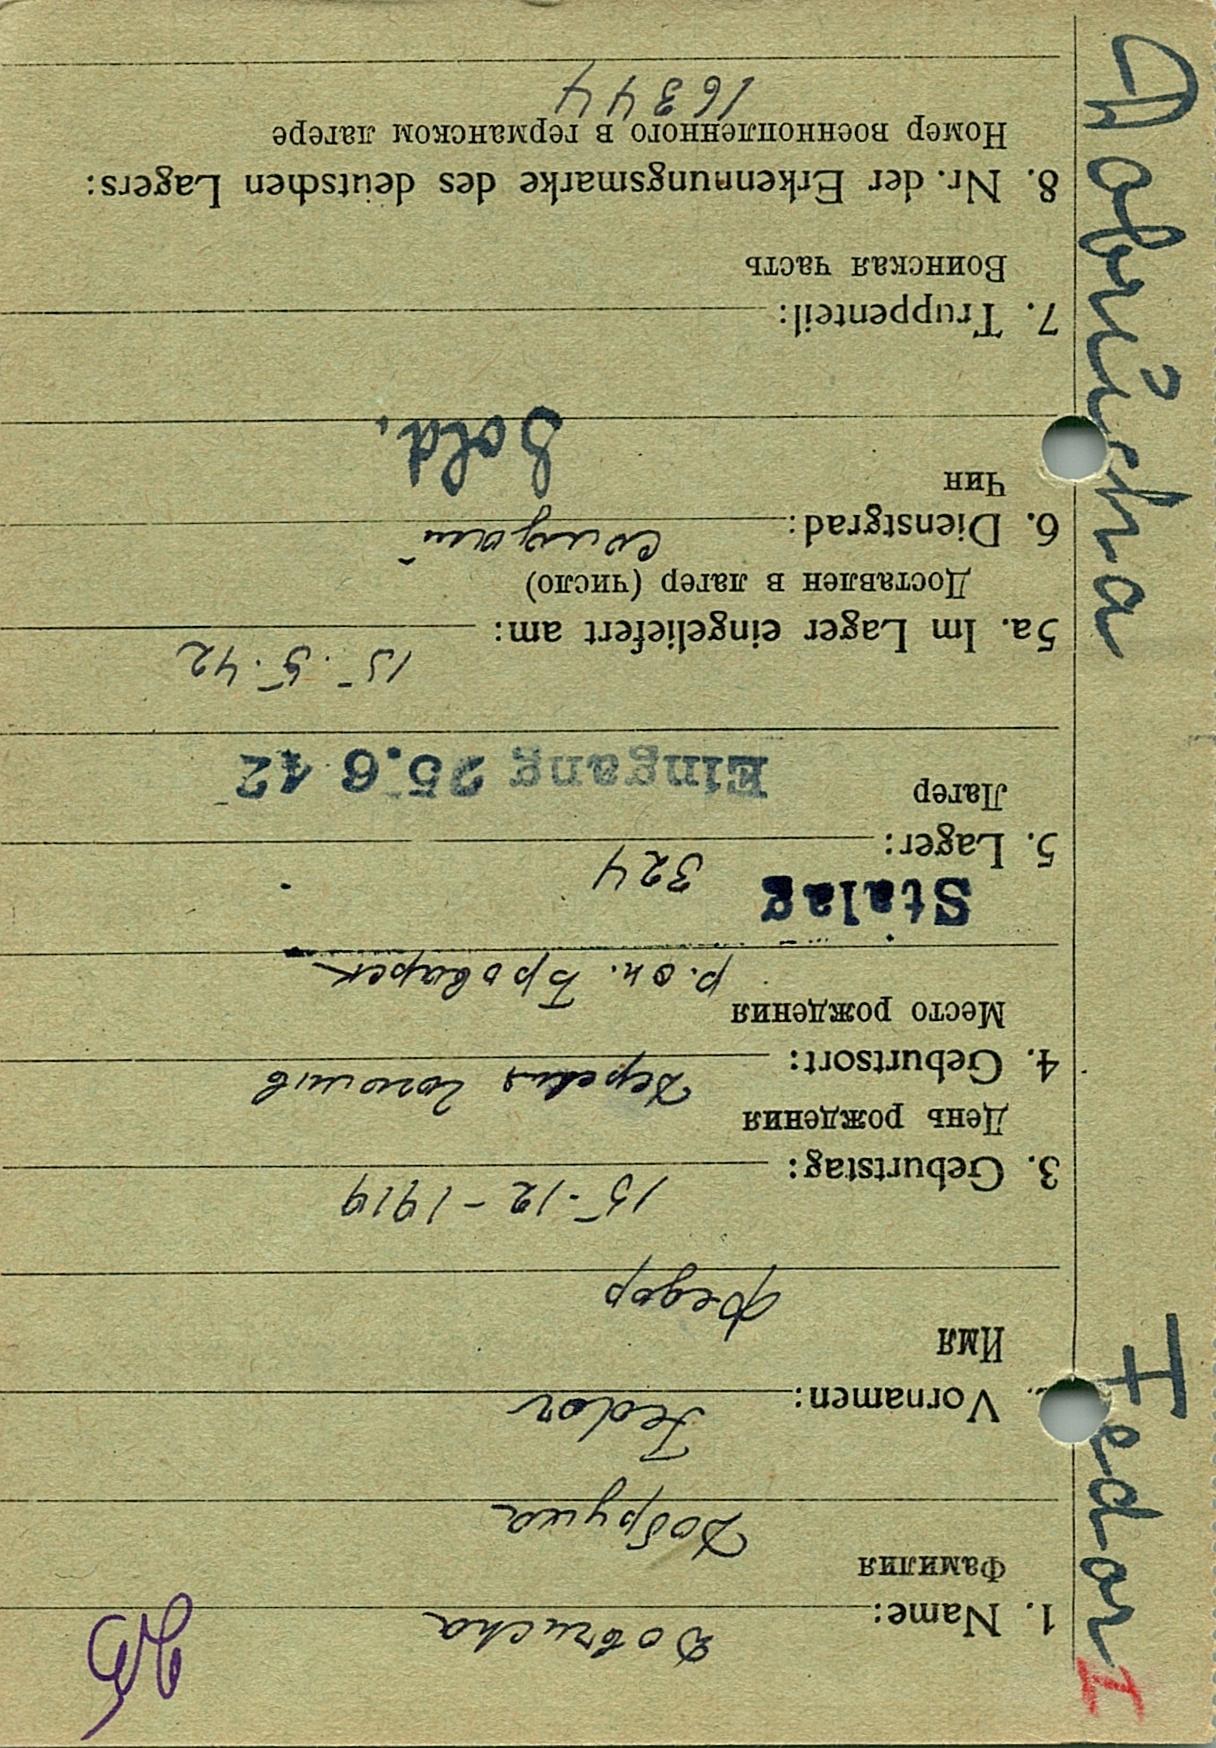 I
Fedor Dobrucha
1. Name: Dobrucha
Фамилия
Добруха
Vornamen: Fedor
Имя
Федор
3. Geburtstag: 15-12-1919
День рождения
4. Geburtsort: Деревня Гоголив
Место рождения
р.он. Броварск
Stalag 324
5. Lager:
Лагер
Eingang 25.6 42
15.5.42
5a. Im Lager eingeliefert am:
Доставлен в лагер (число)
6. Dienstgrad:
Чин
Sold.
7. Truppenteil:
Воинская часть
8. Nr. der Erkennungsmarke des deutschen Lagers:
Номер военнопленного в германском лагере
16344